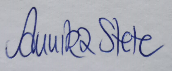 Annika Stete